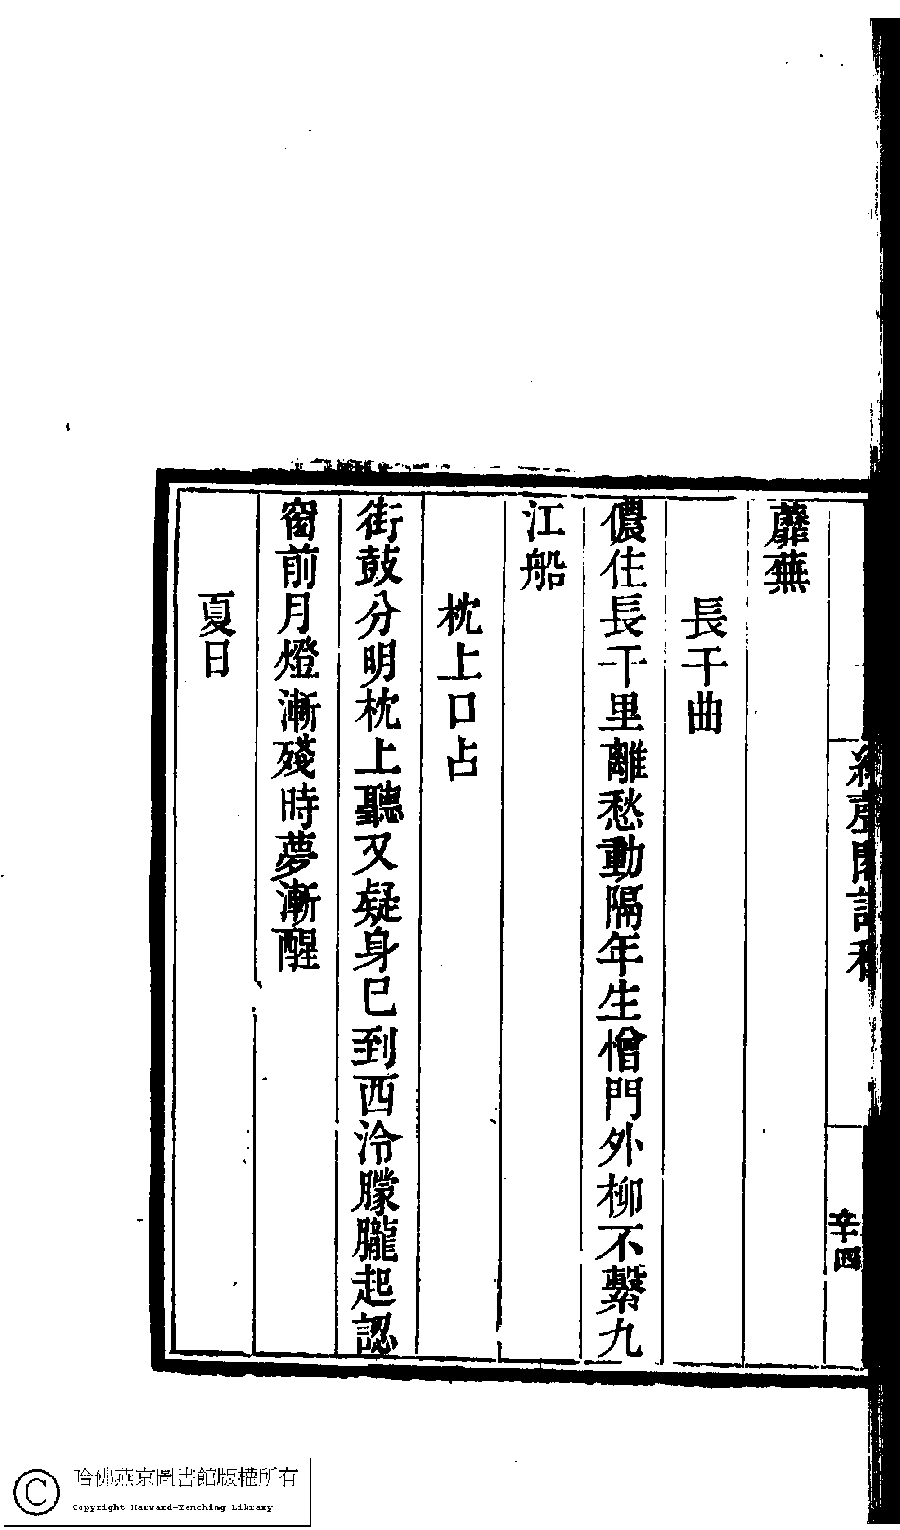 蘼蕪
長干曲
儂住長干里離愁動隔年生憎門外柳不繫九
江船
枕上口占
街鼓分明枕上聽又疑身已到西泠朦朧起認
窗前月燈漸殘時夢漸醒
夏日
四
哈佛燕京圖書館版權所有
Copyright Harvard-Yenching Library